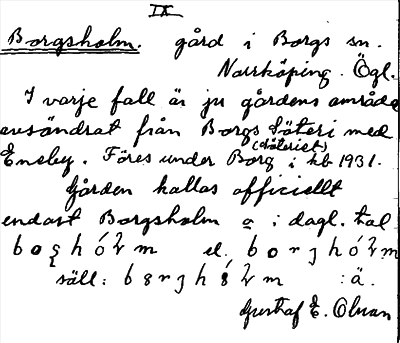 IX
Borgsholm. gård i Borgs sn.
Norrköping. Ögl.
I varje fall är ju gårdens område
avsöndrat från Borgs Säteri med
(Säteriet)
Eneby. Föres under Borg i kb 1931.
Gården kallas officiellt
endast Borgsholm o i dagl. tal
el.
säll: :ä.
Gustaf E. Olsan